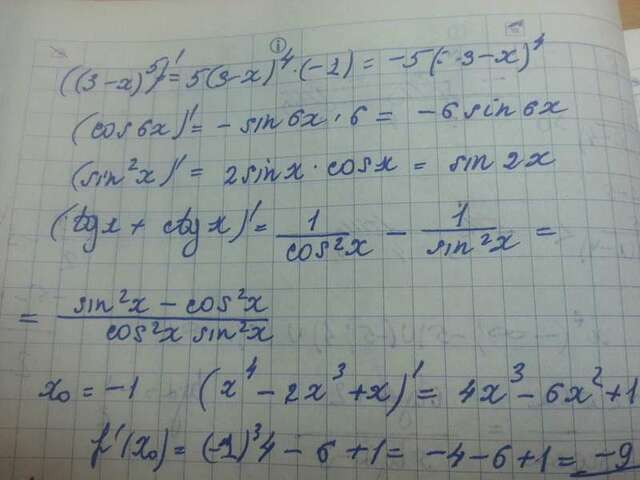 ((3-x)⁵)' = 5(3-x)⁴·(-2) = -5(-3-x)⁴
(cos6x)' = -sin6x·6 = -6sin6x
(sin²x)' = 2sinx·cosx = sin2x
(tgx + ctgx)' = 1/cos²x - 1/sin²x =
= (sin²x - cos²x)/(cos²x sin²x)
x₀ = -1 (x⁴ - 2x³ + x)' = 4x³ - 6x² + 1
f'(x₀) = (-1)³4 - 6 + 1 = -4 - 6 + 1 = -9